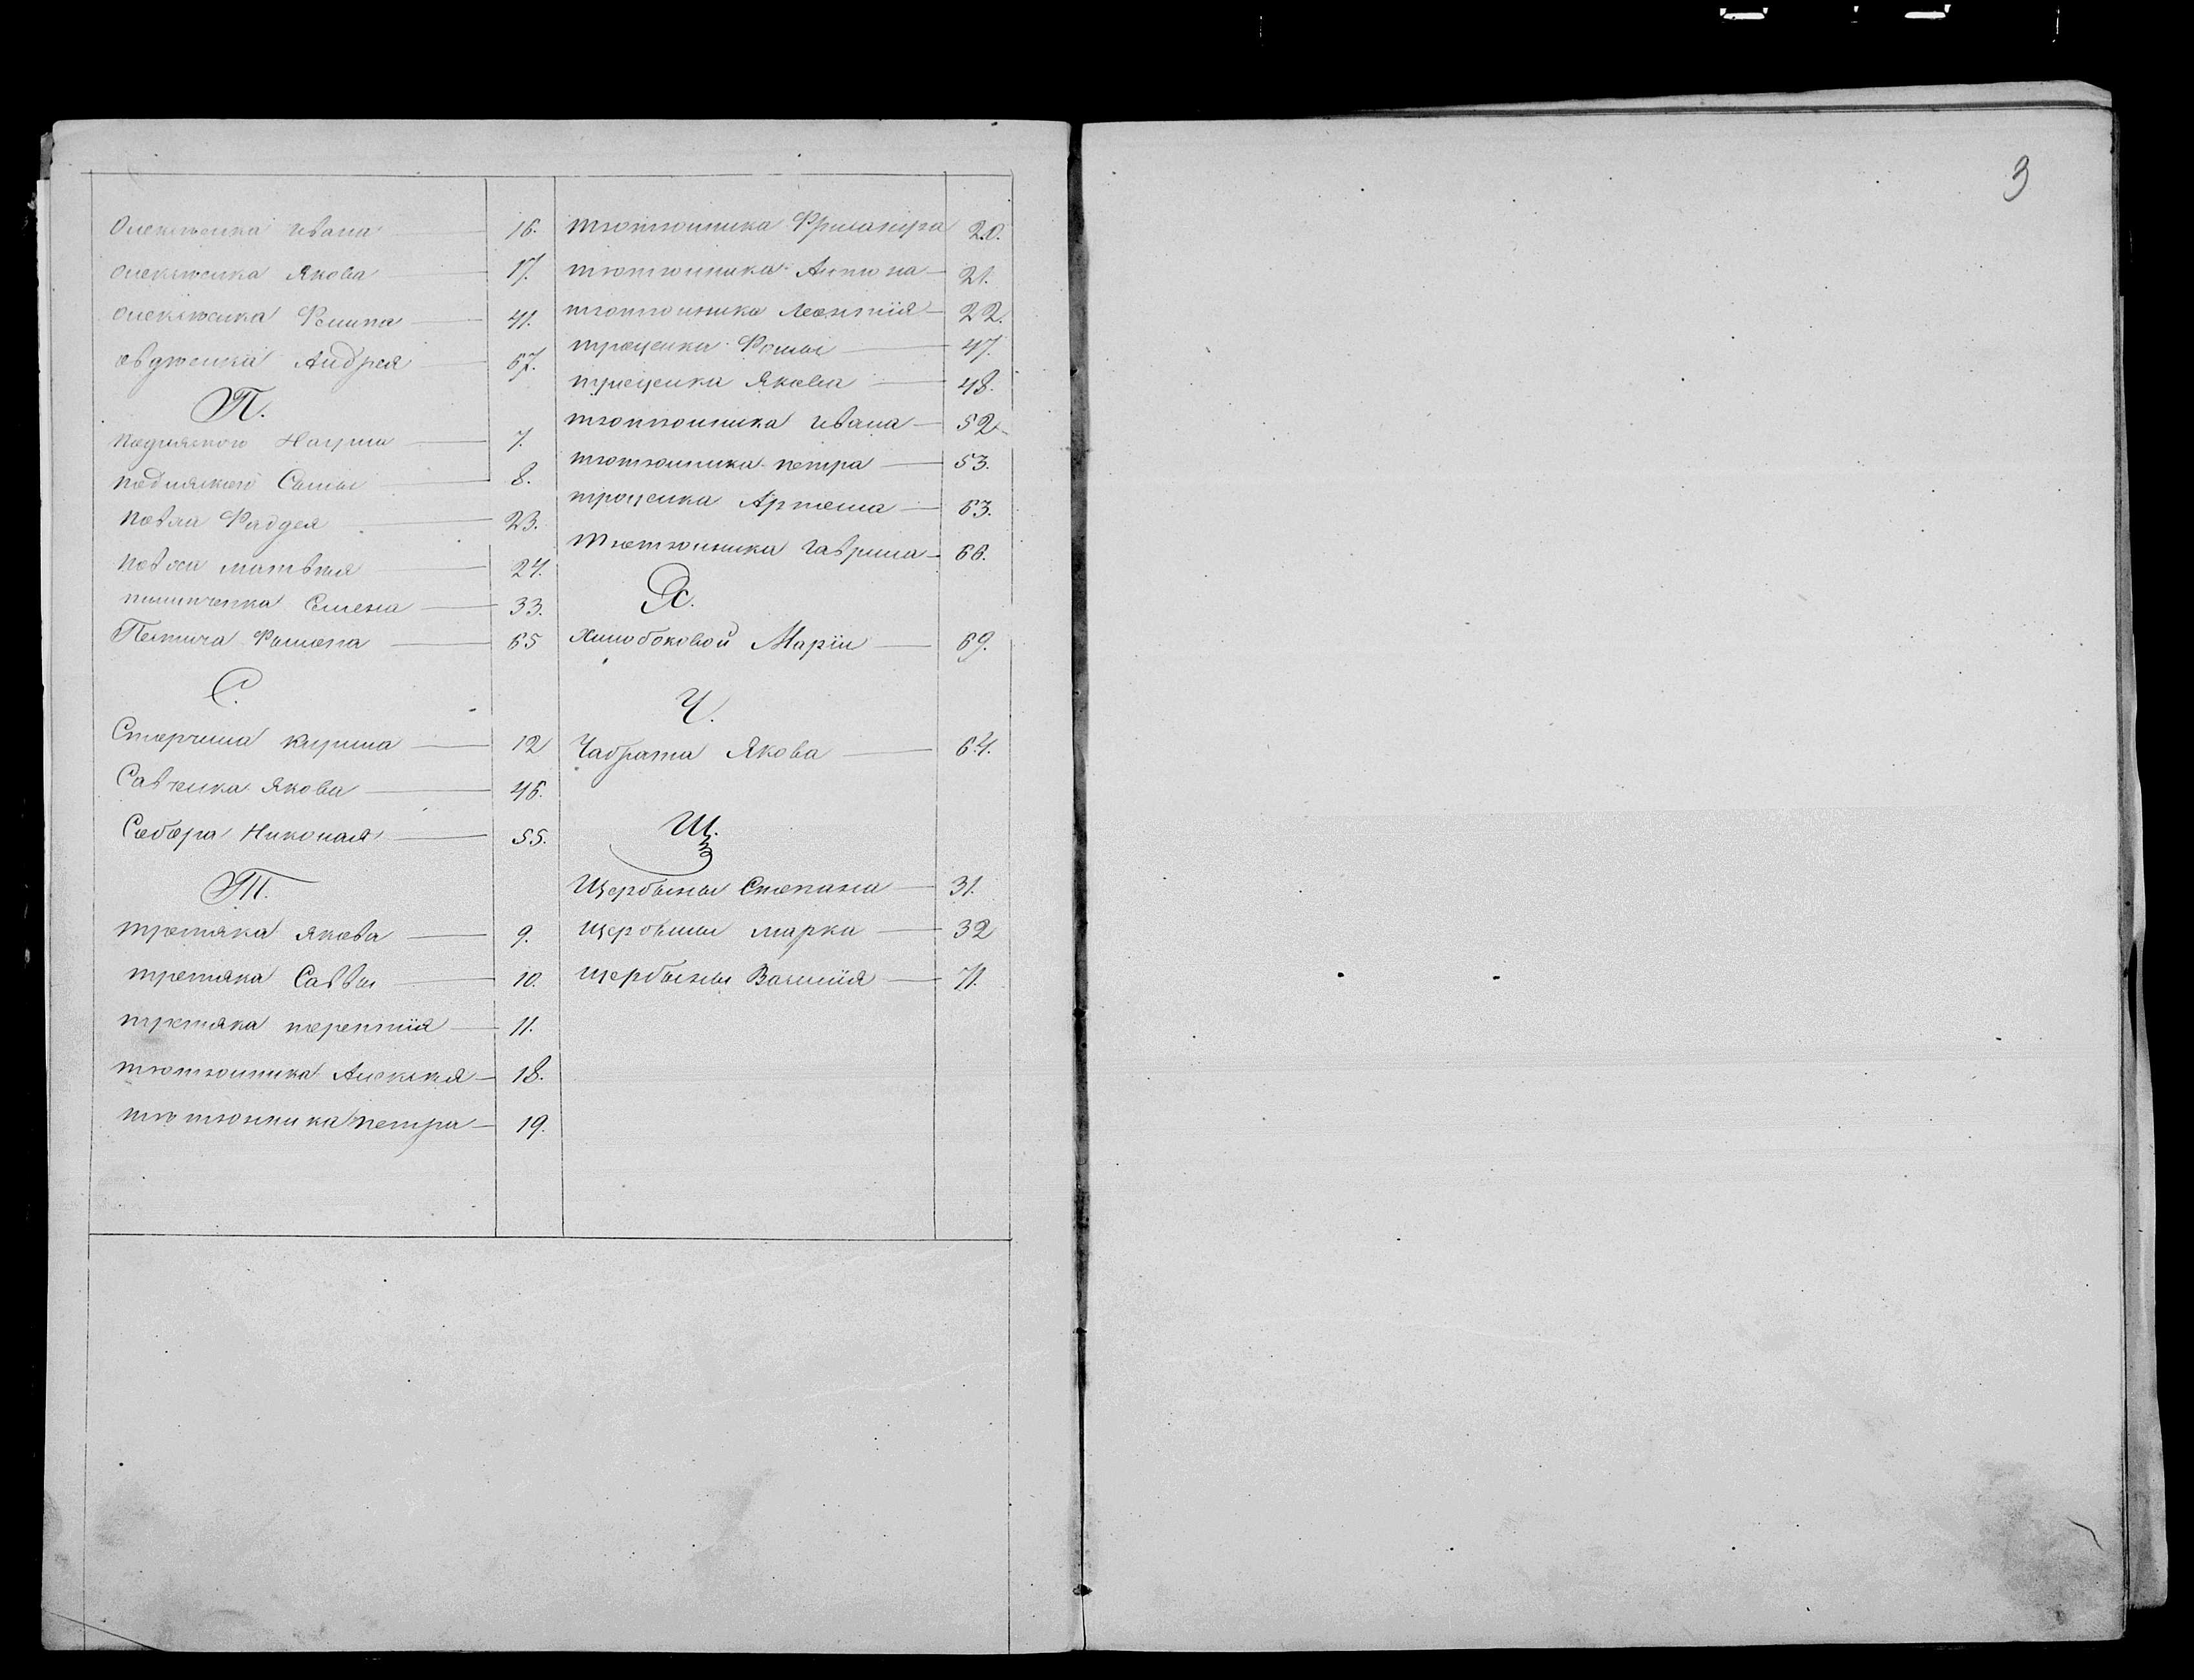 Олексіенка Ивана 16.
Олексіенка Якова 17.
Олексіенка Филипа 41.
Овдіенка Андрея 67.
П.
Подляского Наума 7.
Подляского Саввы 8.
Повха Фадея 23.
Повха Матвѣя 24.
Семена 33.
65
С.
Кирила 12
Савченка Якова 46.
Собора Николая 55.
Т.
третяка Якова 9.
третяка Саввы 10.
третяка терентія 11.
тютюнника Алексѣя 18.
тютюнника петра 19.
тютюнника 20.
тютюнника Антона 21.
тютюнника Леонтія 22.
троценка Фомы 47.
троценка Якова 48.
тютюнника Ивана 52
тютюнника петра 53.
троценка Артема 63.
Тютюнника Гаврила 66.
Х.
Хилобоковой Маріи 69.
Ч.
Чабрата Якова 64.
Щ.
Щербины Степана 31.
Щербины марка 32
щербины Василія 71.
3